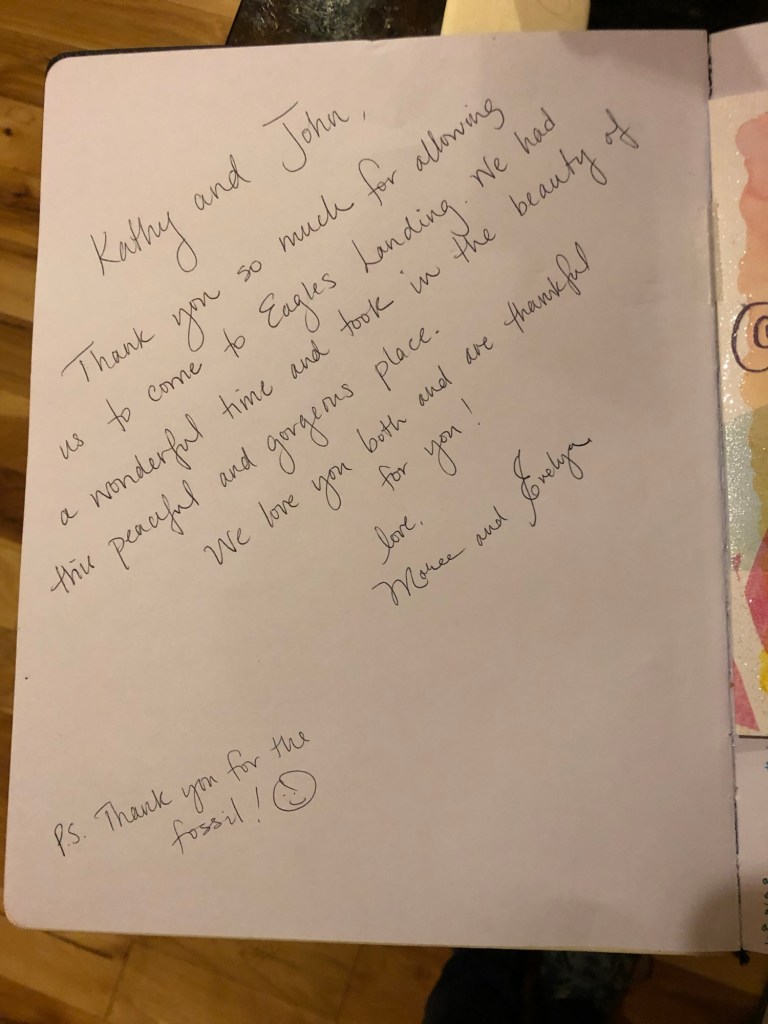 Kathy and John,
Thank you so much for allowing
us to come to Eagles Landing. We had
a wonderful time and took in the beauty of
this peaceful and gorgeous place.
We love you both and are thankful
for you!
love,
Maree and Evelyn
P.S. Thank you for the
fossil!